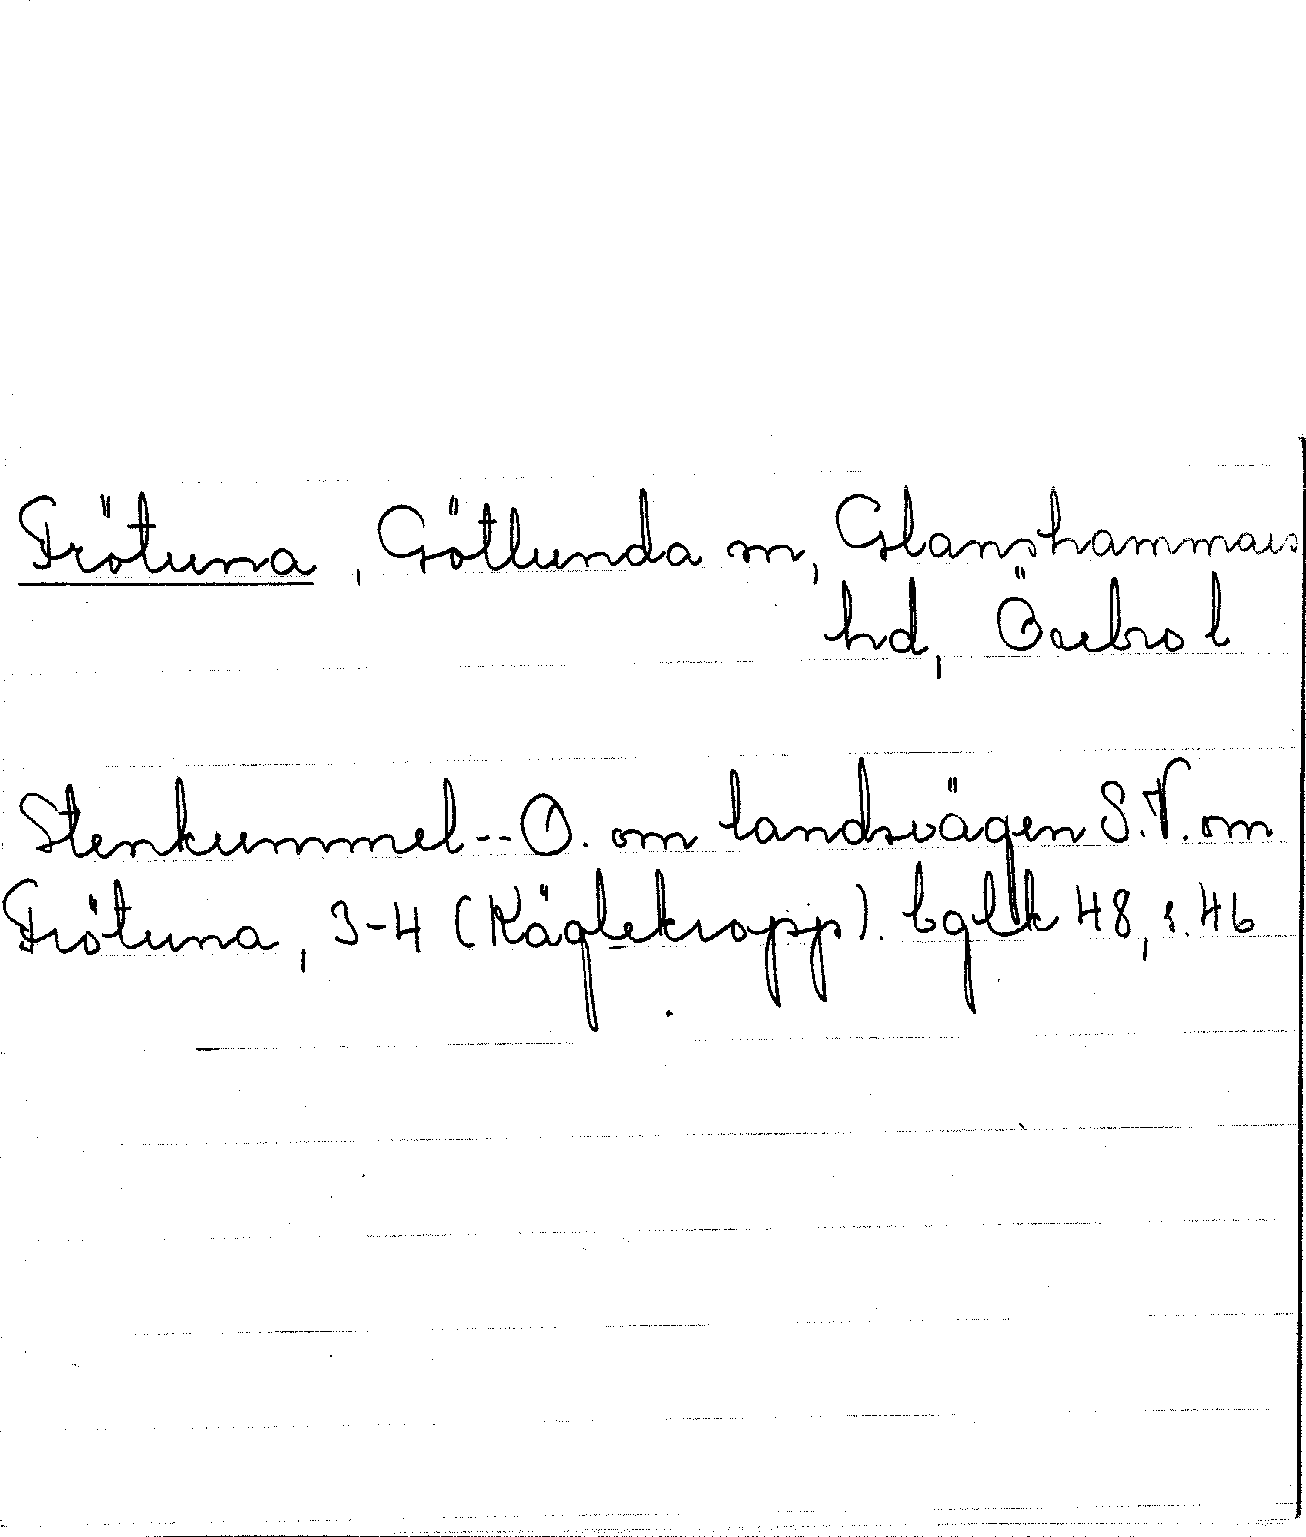 Frötuna, Götlunda sn, Glanshammars
hd, Örebro l
Stenkummel--O. om landsvägen S.V. om
Frötuna, 3-4 (Käglekropp). bglk 48, s. 46